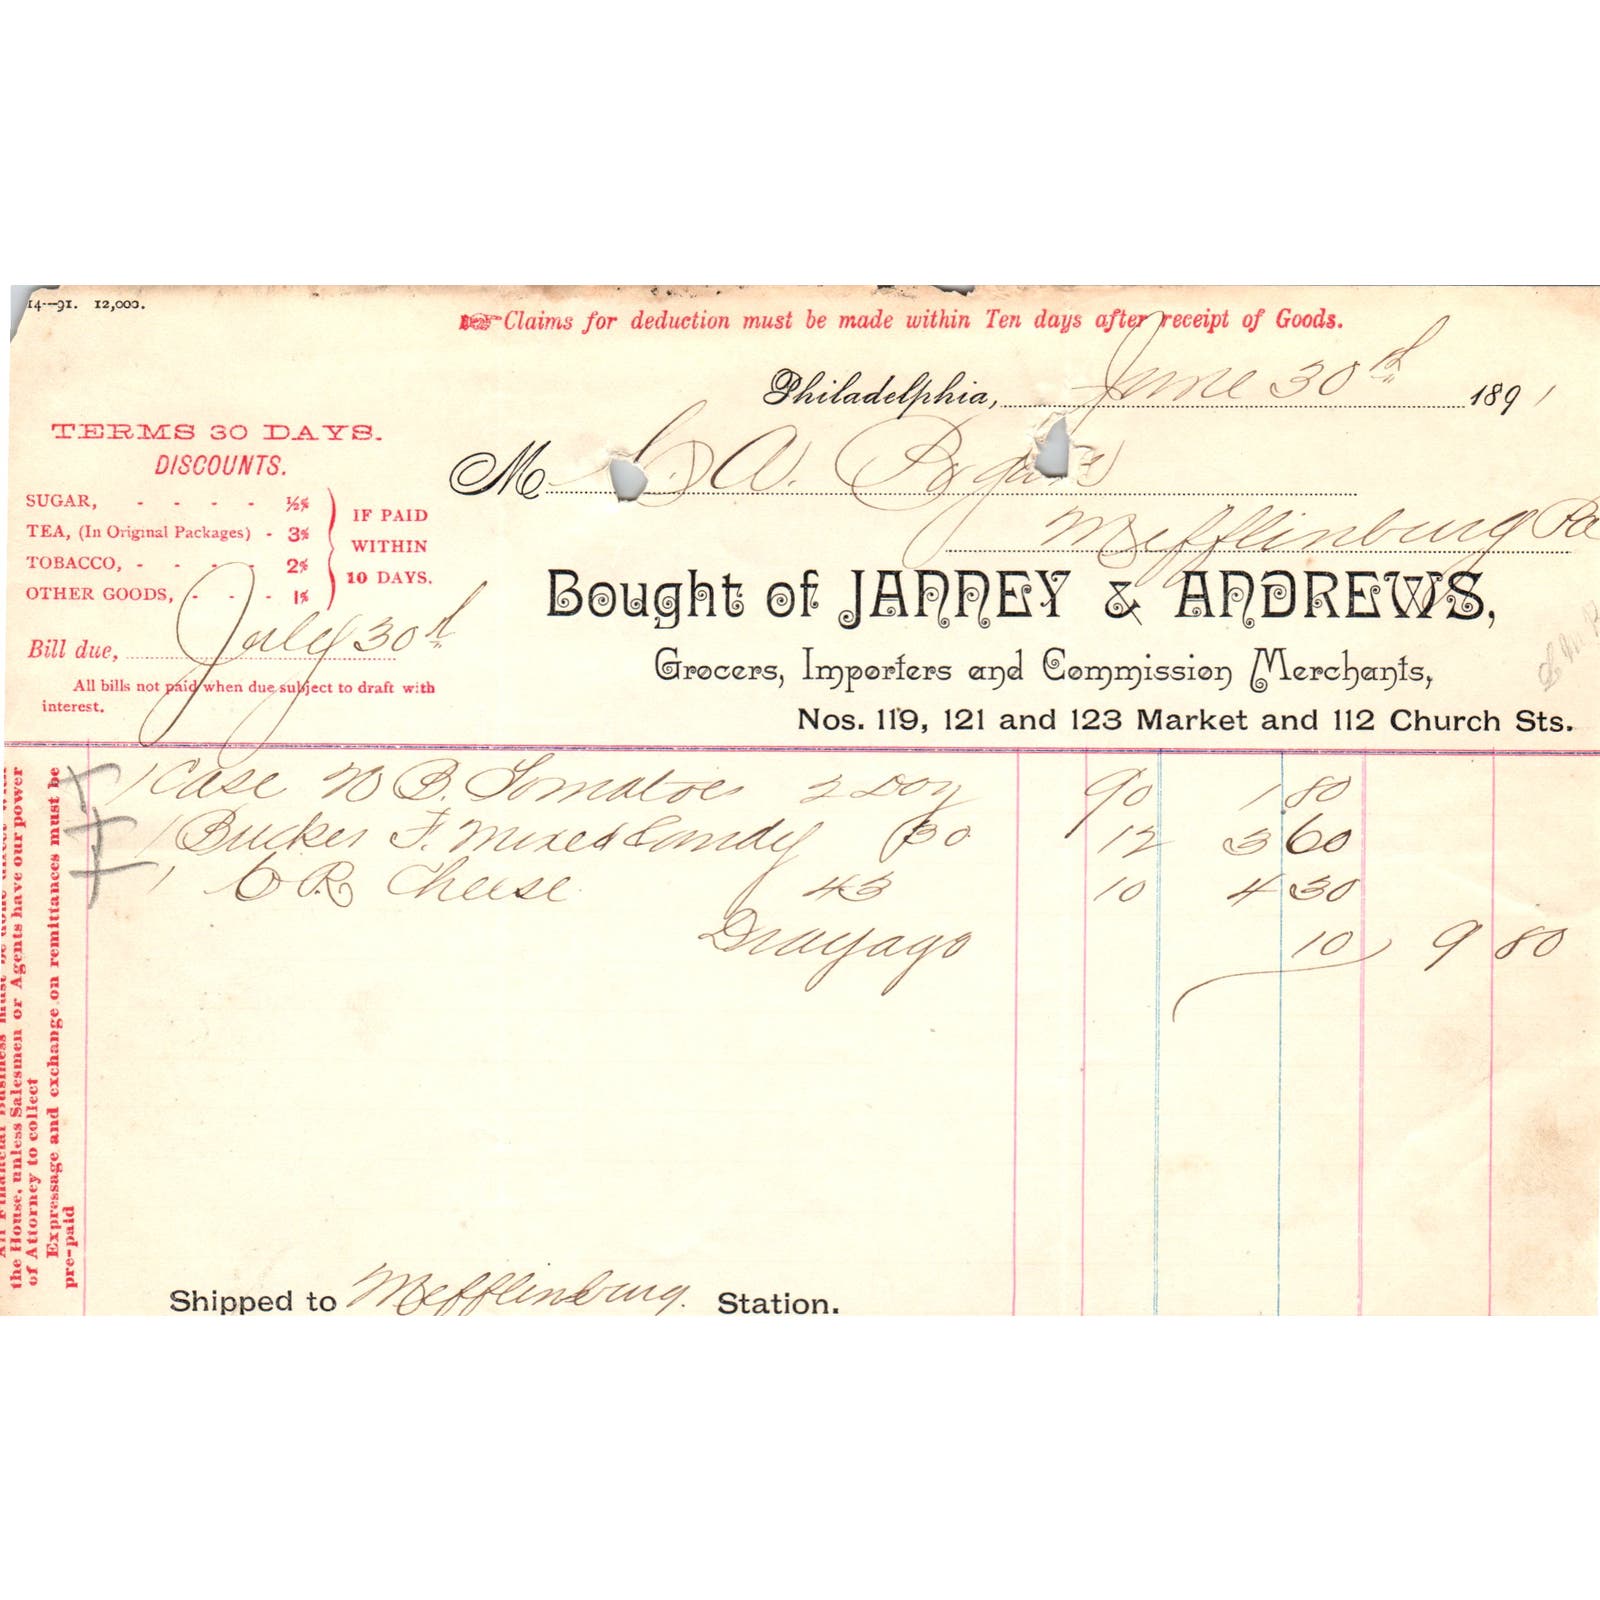 14--91. 12,000.
☞Claims for deduction must be made within Ten days after receipt of Goods.
Philadelphia, June 30th 1891
M A.
Mifflinburg Pa
TERMS 30 DAYS.
DISCOUNTS.
SUGAR, - - - - - ½%
TEA, (In Original Packages) - 3%
TOBACCO, - - - - 2%
OTHER GOODS, - - - 1%
IF PAID
WITHIN
10 DAYS.
Bill due, July 30th
All bills not paid when due subject to draft with
interest.
Bought of JANNEY & ANDREWS,
Grocers, Importers and Commission Merchants,
Nos. 119, 121 and 123 Market and 112 Church Sts.
1 Case B. Tomatoes 2 Doz 90 1 80
1 Bucket F. Mixed Candy 30 12 3 60
1 Cheese 43 10 4 30
Drayage 10 9 80
the House, unless Salesmen or Agents have our power
of Attorney to collect
Expressage and exchange on remittances must be
pre-paid
Shipped to Mifflinburg. Station.